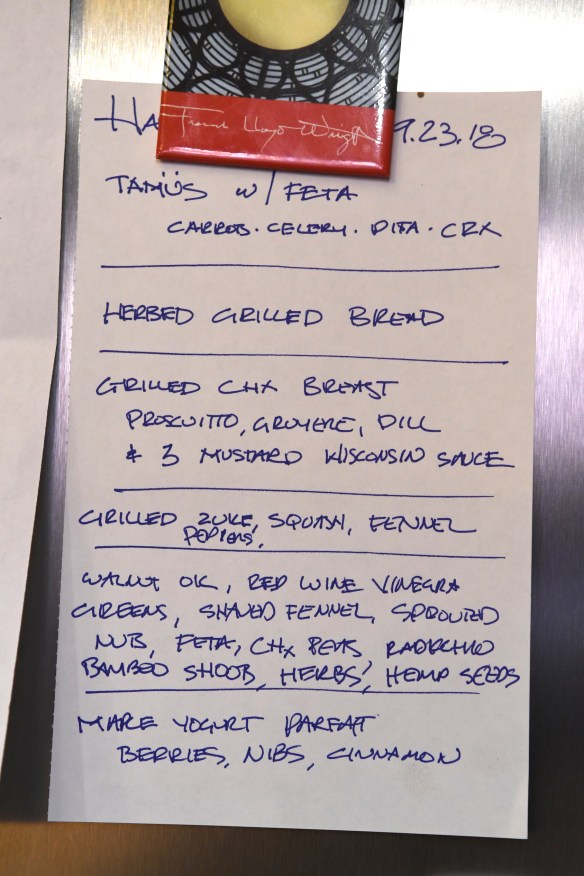 Frank Lloyd Wright
HA 9.23.18
TAMÜS W/ FETA
CARROTS · CELERY · PITA · CRX
HERBED GRILLED BREAD
GRILLED CHX BREAST
PROSCUITTO, GRUYERE, DILL
& 3 MUSTARD WISCONSIN SAUCE
GRILLED ZUKE, SQUASH, FENNEL
PEPPERS,
WALNUT OIL, RED WINE VINEGRA
GREENS, SHAVED FENNEL, SPROUTED
NUTS, FETA, CHX PEAS, RADECHIO
BAMBOO SHOOTS, HERBS, HEMP SEEDS
MAPLE YOGURT PARFAIT
BERRIES, NIBS, CINNAMON